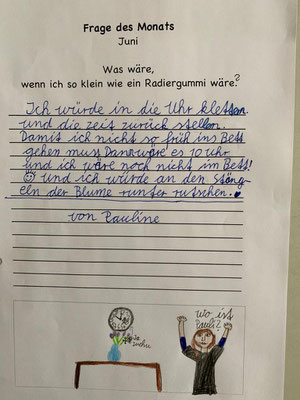 Frage des Monats
Juni
Was wäre,
wenn ich so klein wie ein Radiergummi wäre?
Ich würde in die Uhr klettern
und die zeit zurück stellen.
Damit ich nicht so früh ins Bett
gehen muss Dann wäre es 10 uhr
und ich wäre noch nicht im Bett!
und ich würde an den Stöng-
eln der Blume runter rutschen.
von Pauline
wo ist
Pauli?